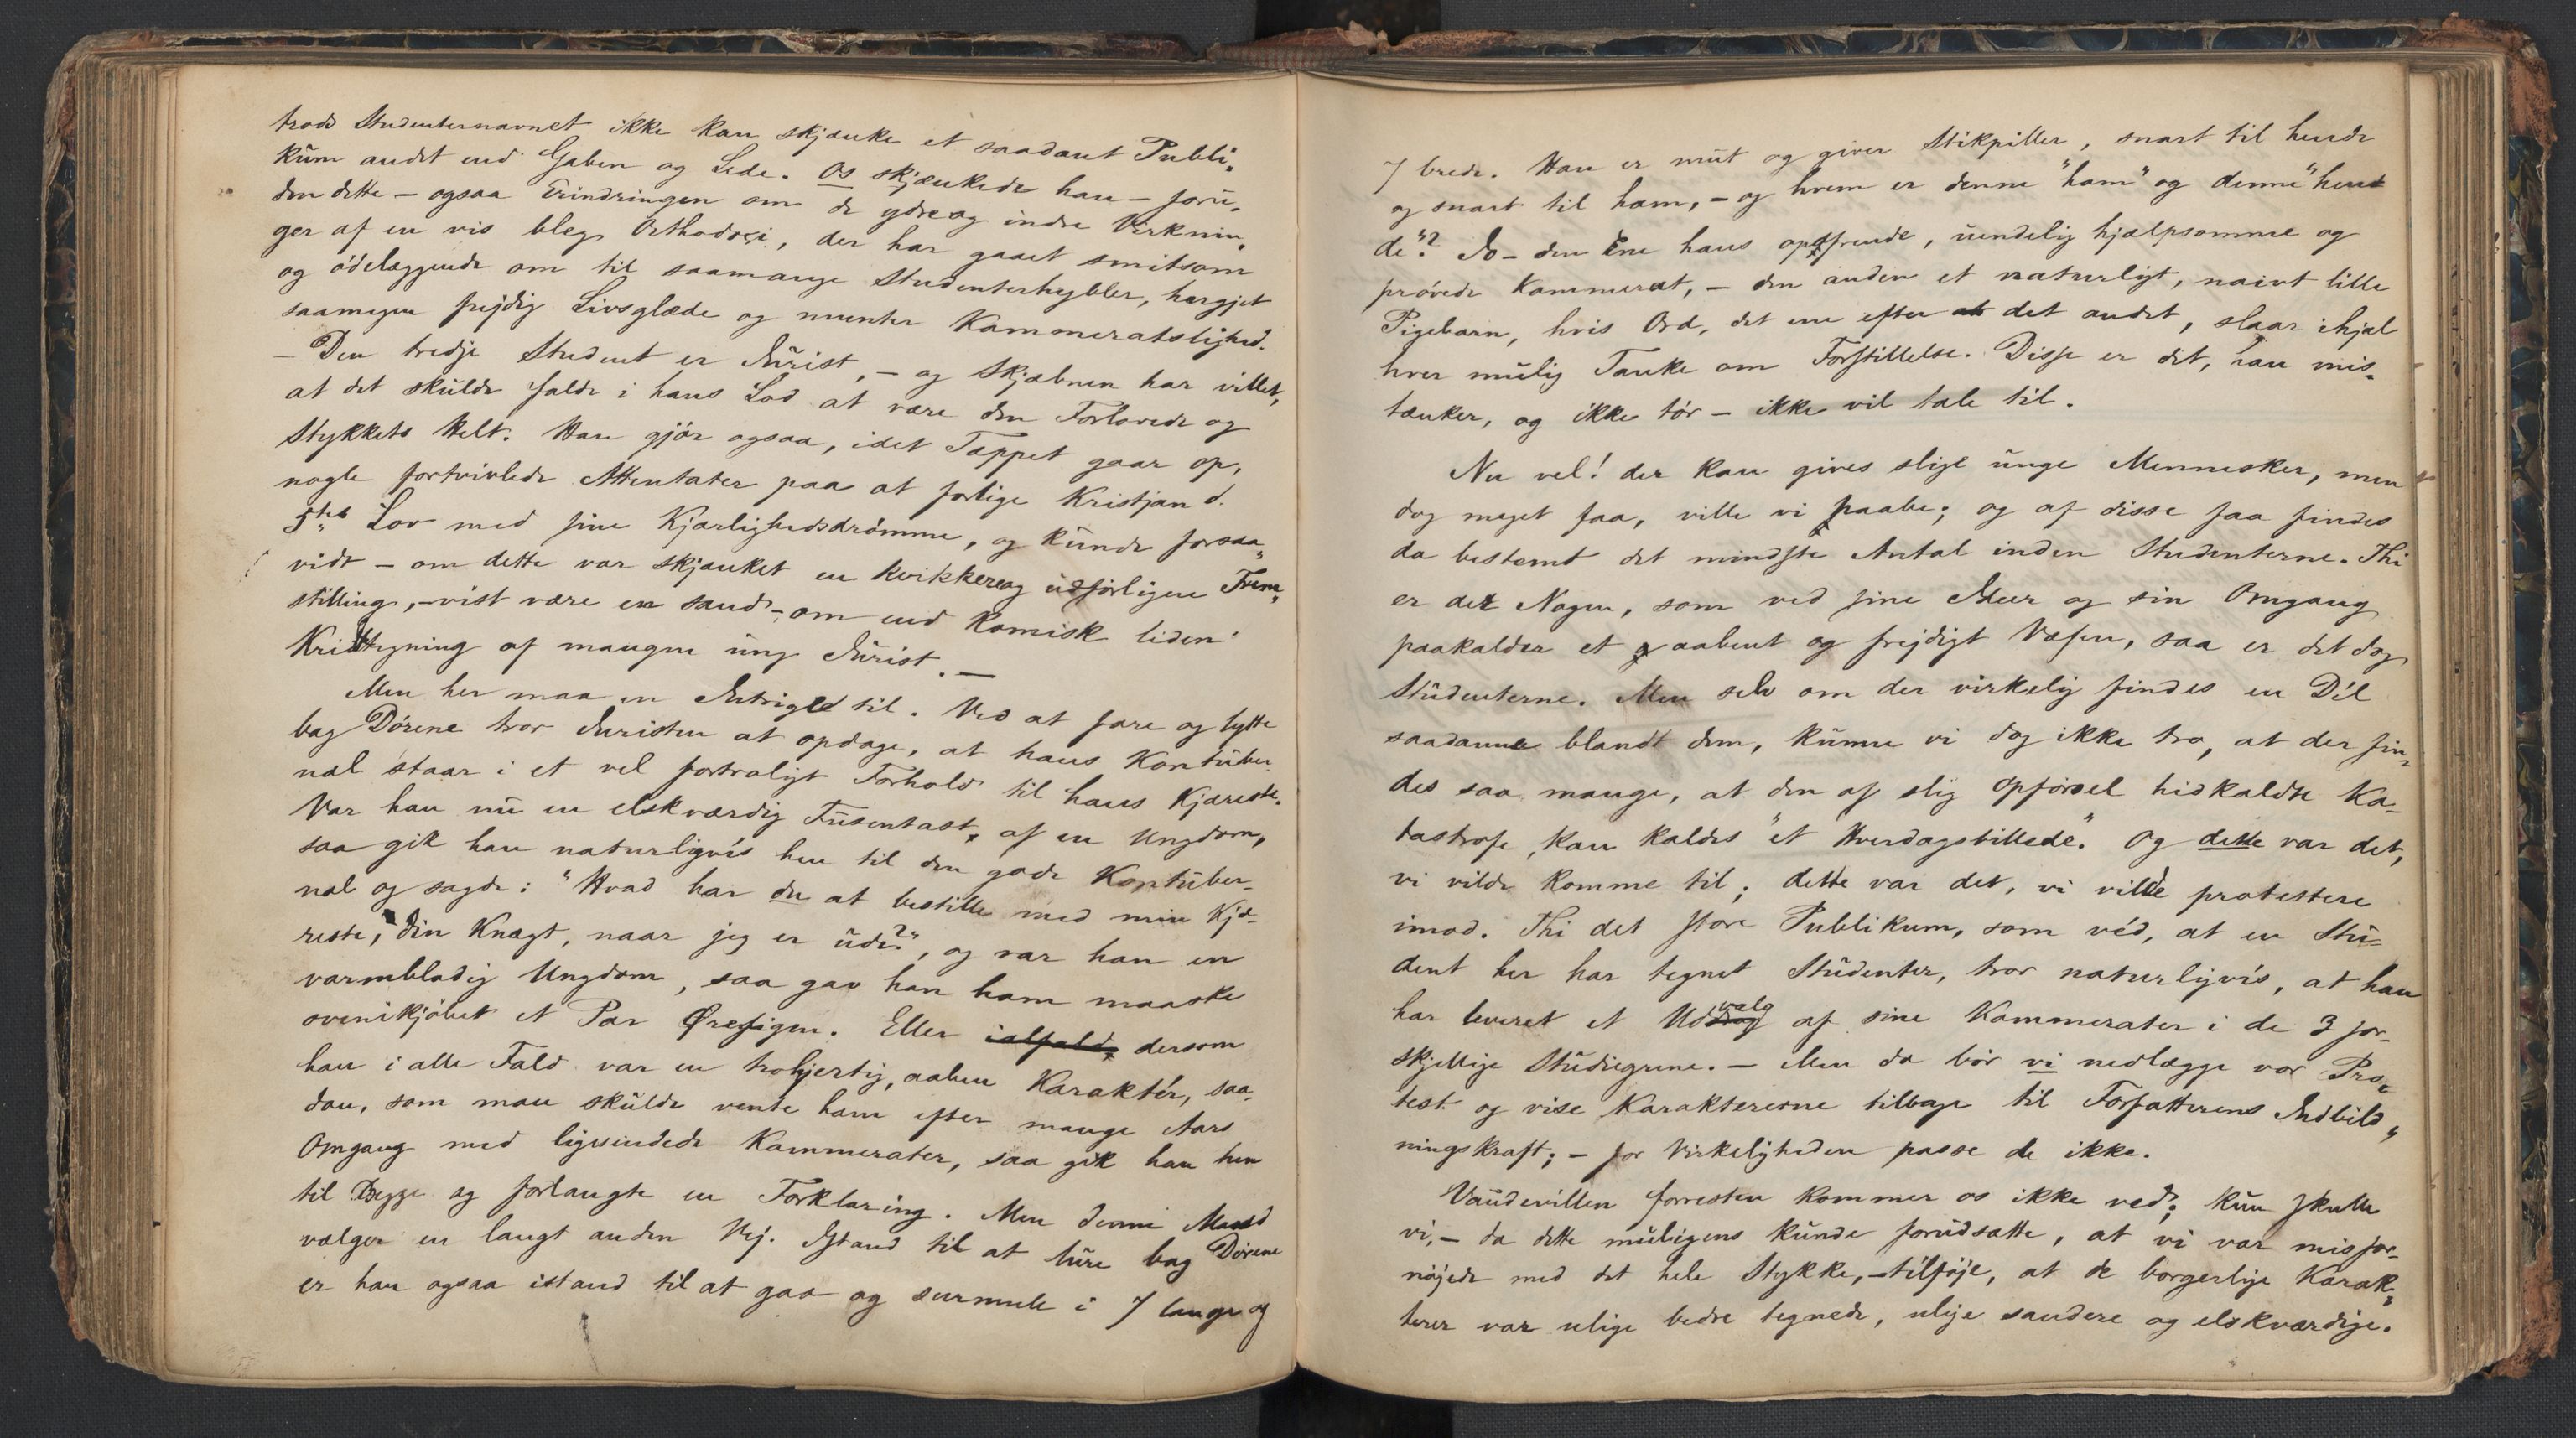 trods Studenternavnet ikke kan skjænke et saadant Publi„
kum andet end Gaben og Lede. Os skjænkede han – foru„
den dette – ogsaa Erindringen om de ydre og indre Virknin„
ger af en vis bleg Orthodoxi, der har gaaet smitsom
og ödelæggende om til saamange Studenterhybler, hærgjet
saamegen frejdig Livsglæde og munter Kammeratslighed.
– Den tredje Student er Jurist, – og Skjæbnen har villet,
at det skulde falde i hans Lod at være den Forlovede og
Stykkets Helt. Han gjör ogsaa, idet Tæppet gaar op,
nogle fortvivlede Attentater paa at forlige Kristjan d.
5tes Lov med sine Kjærlighedsdrömme, og kunde forsaa„
vidt – om dette var skjænket en kvikkere og udförligere Frem„
stilling, – vist være en sand – om end komisk liden
Kridttegning af mangen ung Jurist. –
Men her maa en Intrige til. Ved at fare og lytte
bag Dörene tror Juristen at opdage, at hans Kontuber„
nal staar i et vel fortroligt Forhold til hans Kjæreste.
Var han nu en elskværdig Fusentast af en Ungdom,
saa gik han naturligvis hen til den gode Kontuber„
nal og sagde: "Hvad har du at bestille med min Kjæ-
reste, din Knægt, naar jeg er ude?", og var han en
varmblodig Ungdom, saa gav han ham maaske
ovenikjöbet et Par Örefigen. Eller ialfald, dersom
han i alle Fald var en trohjertig, aaben Karaktér, saa„
dan, som man skulde vente ham efter mange Aars
Omgang med ligesindede Kammerater, saa gik han hen
til Begge og forlangte en Forklaring. Men denne Mand
vælger en langt anden Vej. Istand til at lure bag Dörene
er han ogsaa istand til at gaa og surmule i 7 lange og
7 brede. Han er mut og giver Stikpiller, snart til hende
og snart til ham, – og hvem er denne "ham" og denne "hen
de"? Jo – den Ene hans opofrende, uendelig hjælpsomme og
prövede Kammerat, – den anden et naturligt, naivt lille
Pigebarn, hvis Ord, det ene efter det andet, slaar ihjel
hver mulig Tanke om Forstillelse. Disse er det, han mis„
tænker, og ikke tör – ikke vil tale til.
Nu vel! der kan gives slige unge Mennesker, men
dog meget faa, ville vi haabe; og af disse faa findes
da bestemt det mindste Antal inden Studenterne. Thi
er der Nogen, som ved sine Ideer og sin Omgang
paakalder et aabent og frejdigt Væsen, saa er det dog
Studenterne. Men selv om der virkelig findes en Dél
saadanne blandt dem, kunne vi dog ikke tro, at der fin„
des saa mange, at den af slig Opförsel hidkaldte Ka-
tastrofe kan kaldes "et Hverdagsbillede". Og dette var det,
vi vilde komme til; dette var det, vi vilde protestere
imod. Thi det store Publikum, som véd, at en Stu-
dent her har tegnet Studenter, tror naturligvis, at han
har leveret et Uddrag valg af sine Kammerater i de 3 for-
skjellige Studiegrene. – Men da bör vi nedlægge vor Pro„
test og vise Karaktererne tilbage til Forfatterens Indbild„
ningskraft; – for Virkeligheden passe de ikke.
Vaudevillen forresten kommer os ikke ved; kun skulle
vi, – da dette muligens kunde forudsætte, at vi var misfor-
nöjede med det hele Stykke, – tilföje, at de borgerlige Karak„
terer var ulige bedre tegnede, ulige sandere og elskværdige.